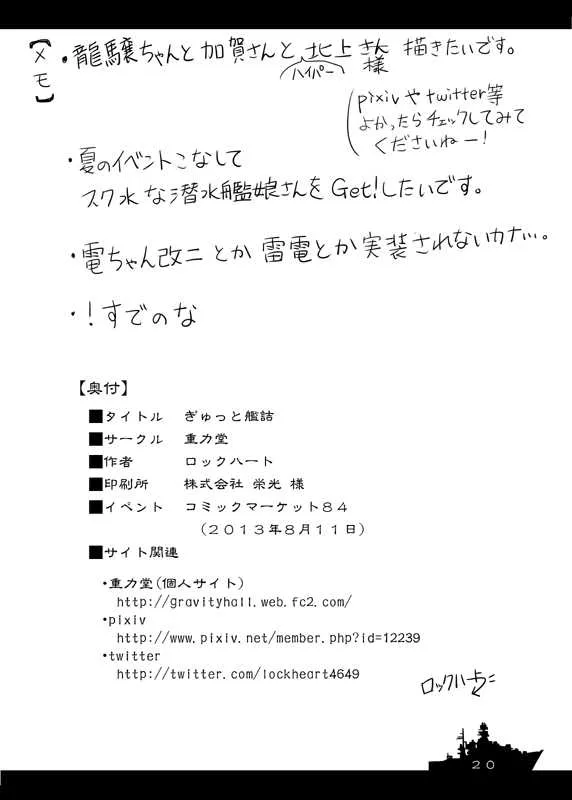 【メモ】
・龍驤ちゃんと加賀さんと北上さん 描きたいです。
ハイパー 様
pixivやtwitter等
よかったらチェックしてみて
くださいねー！
・夏のイベントこなして
スク水な潜水艦娘さんをGet!したいです。
・電ちゃん改二とか雷電とか実装されないカナ…。
・！すでのな
【奥付】
■タイトル ぎゅっと艦詰
■サークル 重力堂
■作者 ロックハート
■印刷所 株式会社 栄光 様
■イベント コミックマーケット８４
（２０１３年８月１１日）
■サイト関連
・重力堂（個人サイト）
http://gravityhall.web.fc2.com/
・pixiv
http://www.pixiv.net/member.php?id=12239
・twitter
http://twitter.com/lockheart4649
ロックハート
２０